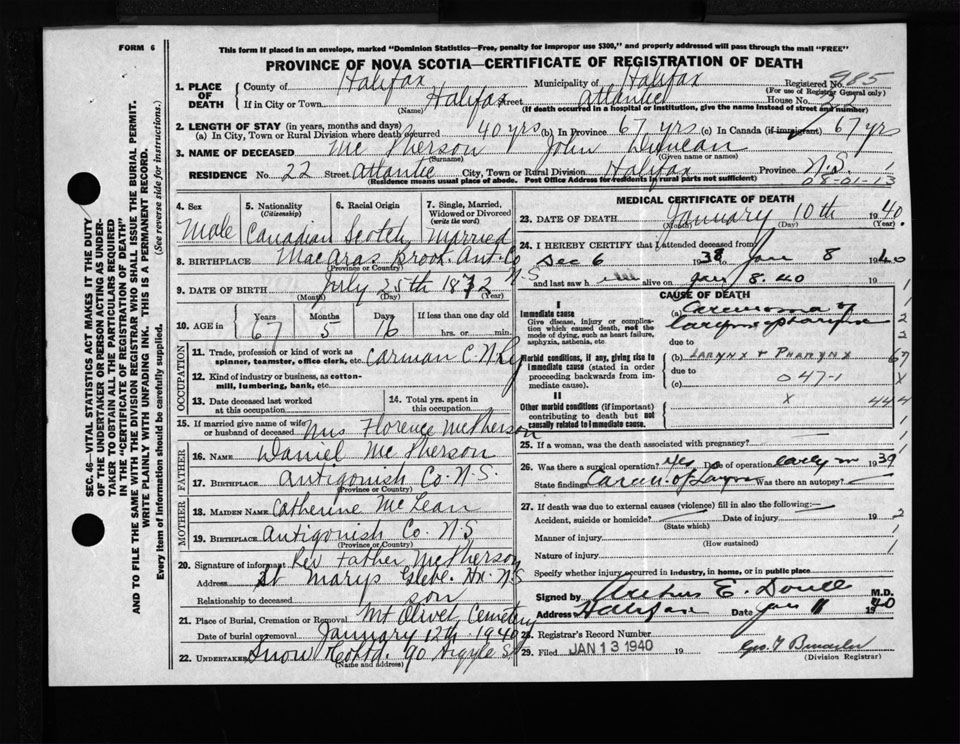 FORM 6
This form if placed in an envelope, marked "Dominion Statistics—Free, penalty for improper use $300," and properly addressed will pass through the mail "FREE"
PROVINCE OF NOVA SCOTIA—CERTIFICATE OF REGISTRATION OF DEATH
Registered No. 985
(For use of Registrar General only)
1. PLACE OF DEATH
County of Halifax Municipality of Halifax
If in City or Town Halifax Street Atlantic House No. 22
(Name) (If death occurred in a hospital or institution, give the name instead of street and number)
2. LENGTH OF STAY (in years, months and days)
(a) In City, Town or Rural Division where death occurred 40 yrs (b) In Province 67 yrs (c) In Canada (if immigrant) 67 yrs
3. NAME OF DECEASED Mc Pherson John Duncan
(Surname) (Given name or names)
RESIDENCE No. 22 Street Atlantic City, Town or Rural Division Halifax Province N.S.
(Residence means usual place of abode. Post Office Address for residents in rural parts not sufficient)
08-01-13
4. Sex Male
5. Nationality (Citizenship) Canadian
6. Racial Origin Scotch
7. Single, Married, Widowed or Divorced (write the word) Married
8. BIRTHPLACE MacAras Brook. Ant. Co N-S
(Province or Country)
9. DATE OF BIRTH July 25th 1872
(Month) (Day) (Year)
10. AGE in Years Months Days If less than one day old
67 5 16 hrs. or min.
OCCUPATION
11. Trade, profession or kind of work as spinner, teamster, office clerk, etc. Carman C. N Ry
12. Kind of industry or business, as cotton-mill, lumbering, bank, etc.
13. Date deceased last worked at this occupation
14. Total yrs. spent in this occupation
15. If married give name of wife or husband of deceased Mrs Florence McPherson
FATHER
16. NAME Daniel Mc Pherson
17. BIRTHPLACE Antigonish Co. N.S.
(Province or Country)
MOTHER
18. MAIDEN NAME Catherine McLean
19. BIRTHPLACE Antigonish Co. N.S
(Province or Country)
20. Signature of informant Rev Father McPherson
Address St Marys Glebe. Hx. N.S
Relationship to deceased son
21. Place of Burial, Cremation or Removal Mt Olivet Cemetery
Date of burial or removal January 12th 1940
22. UNDERTAKER Snow & Co Ltd. 90 Argyle St
(Name and address)
MEDICAL CERTIFICATE OF DEATH
23. DATE OF DEATH January 10th 1940
(Month) (Day) (Year)
24. I HEREBY CERTIFY that I attended deceased from
Dec 6 1938 to Jan 8 1940
and last saw h alive on Jan 8. 40
CAUSE OF DEATH
I
Immediate cause
Give disease, injury or complication which caused death, not the mode of dying, such as heart failure, asphyxia, asthenia, etc.
(a) Carcinoma of
Larynx & pharynx
due to
Morbid conditions, if any, giving rise to immediate cause (stated in order proceeding backwards from immediate cause).
(b) LARYNX & PHARYNX
due to
(c) 047-1
II
Other morbid conditions (if important) contributing to death but not causally related to immediate cause.
x 444
25. If a woman, was the death associated with pregnancy?
26. Was there a surgical operation? Yes Date of operation early in 1939
State findings Carcin. of Larynx Was there an autopsy? —
27. If death was due to external causes (violence) fill in also the following:—
Accident, suicide or homicide? Date of injury 19
(State which)
Manner of injury
(How sustained)
Nature of injury
Specify whether injury occurred in industry, in home, or in public place
Signed by M.D.
Address Halifax Date Jan 11 1940
28. Registrar's Record Number
29. Filed JAN 13 1940 19
(Division Registrar)
SEC. 46—VITAL STATISTICS ACT MAKES IT THE DUTY
OF THE UNDERTAKER OR PERSON ACTING AS UNDERTAKER TO OBTAIN ALL THE PARTICULARS REQUIRED
IN THE "CERTIFICATE OF REGISTRATION OF DEATH"
AND TO FILE THE SAME WITH THE DIVISION REGISTRAR WHO SHALL ISSUE THE BURIAL PERMIT.
WRITE PLAINLY WITH UNFADING INK. THIS IS A PERMANENT RECORD.
Every item of information should be carefully supplied. (See reverse side for instructions.)